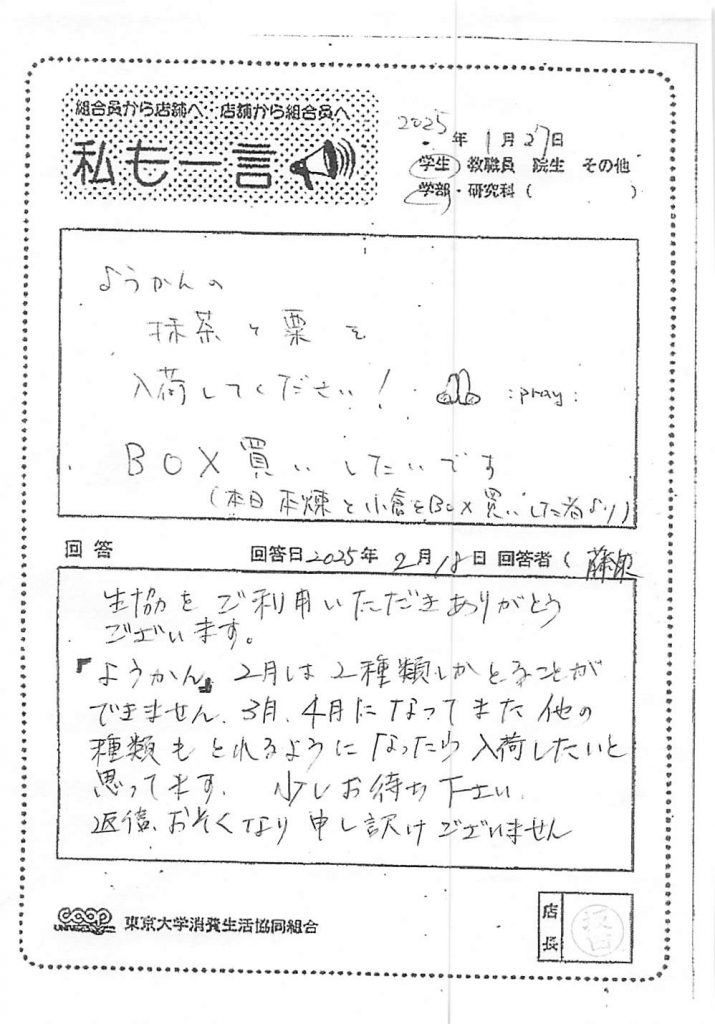 組合員から店舗へ・店舗から組合員へ
私も一言
2025年1月27日
学生 教職員 院生 その他
学部・研究科（　　　）
ようかんの
抹茶と栗を
入荷してください！ :pray:
BOX買いしたいです
（本日 本煉と小倉をBox買いした者より）
回答 回答日2025年2月18日 回答者（藤原
生協をご利用いただきありがとう
ございます。
『ようかん』2月は2種類しかとることが
できません、3月、4月になってまた他の
種類もとれるようになったら入荷したいと
思ってます、少しお待ち下さい、
返信、おそくなり申し訳けございません
coop 東京大学消費生活協同組合
店長